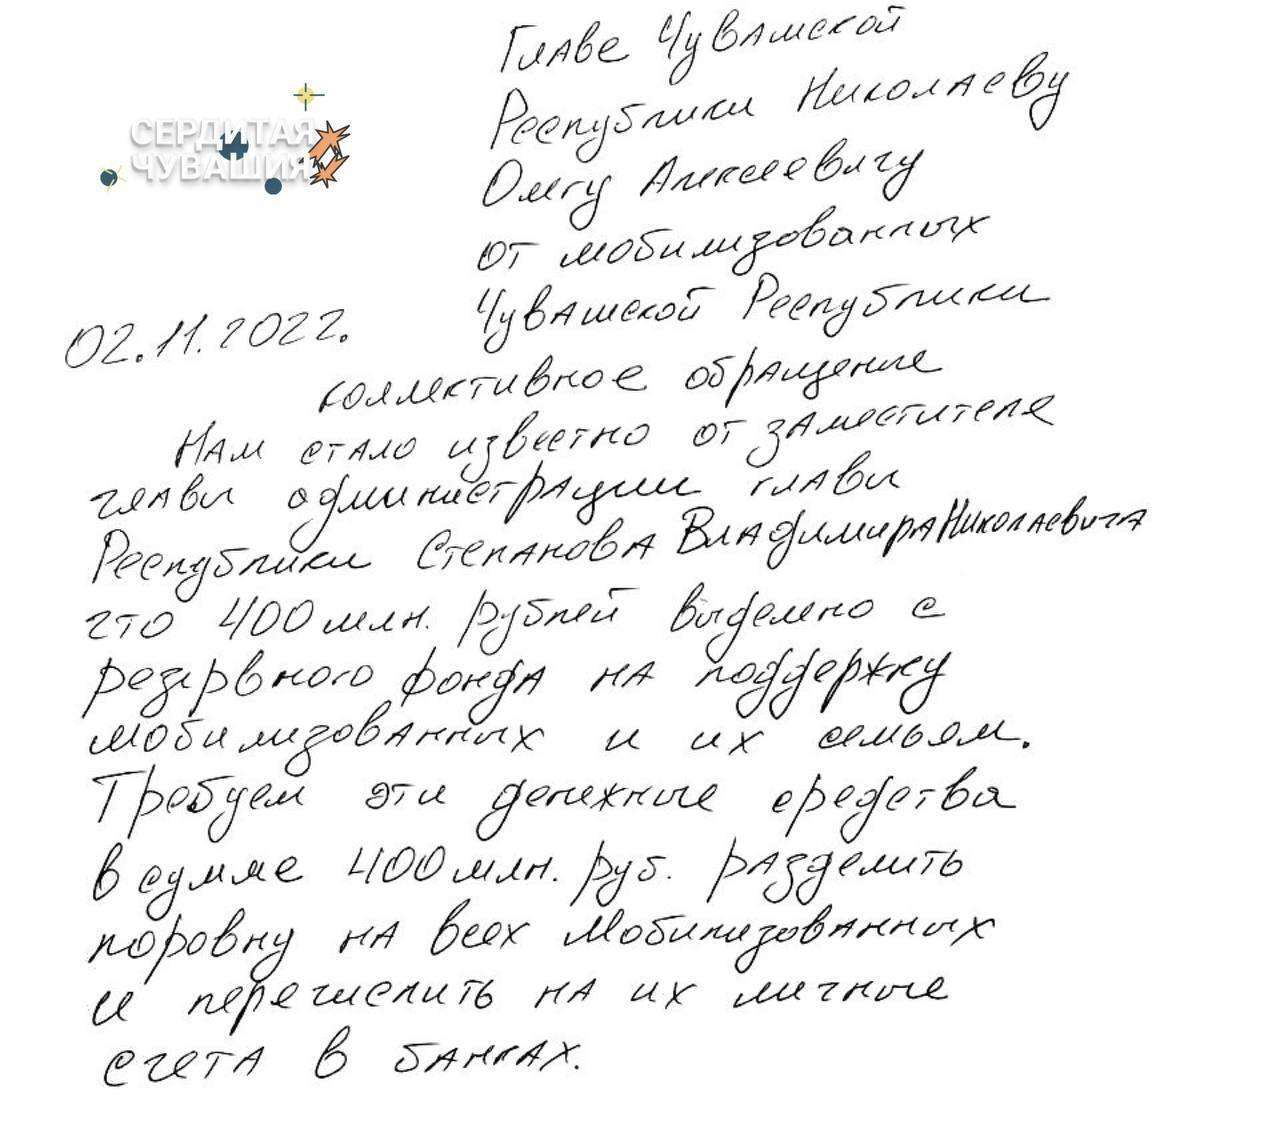 Главе Чувашской
Республики Николаеву
СЕРДИТАЯ
ЧУВАШИЯ
Олегу Алексеевичу
от мобилизованных
Чувашской Республики
02.11.2022.
коллективное обращение
Нам стало известно от заместителя
главы администрации главы
Республики Степанова Владимира Николаевича
что 400 млн. рублей выделено с
резервного фонда на поддержку
мобилизованных и их семьям.
Требуем эти денежные средства
в сумме 400 млн. руб. разделить
поровну на всех мобилизованных
и перечислить на их личные
счета в банках.